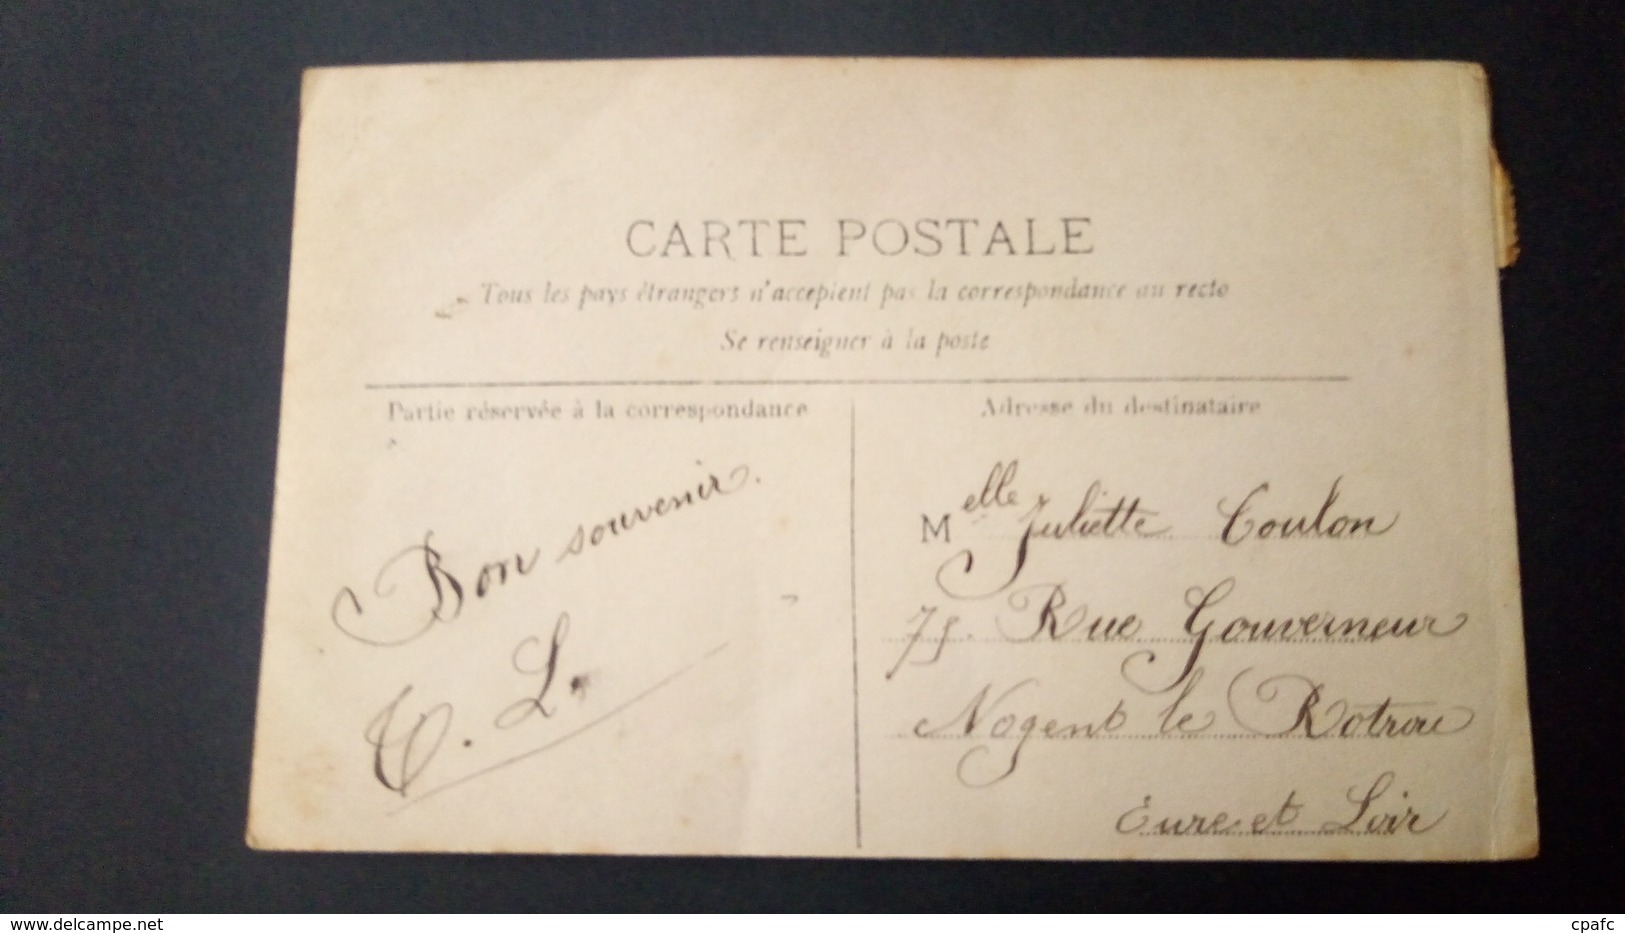 CARTE POSTALE
Tous les pays étrangers n'acceptent pas la correspondance au recto
Se renseigner à la poste
Partie réservée à la correspondance
Bon souvenir.
L.
Adresse du destinataire
Melle Juliette Coulon
75. Rue Gouverneur
Nogent le Rotrou
Eure et Loir
www.delcampe.net
cpafc